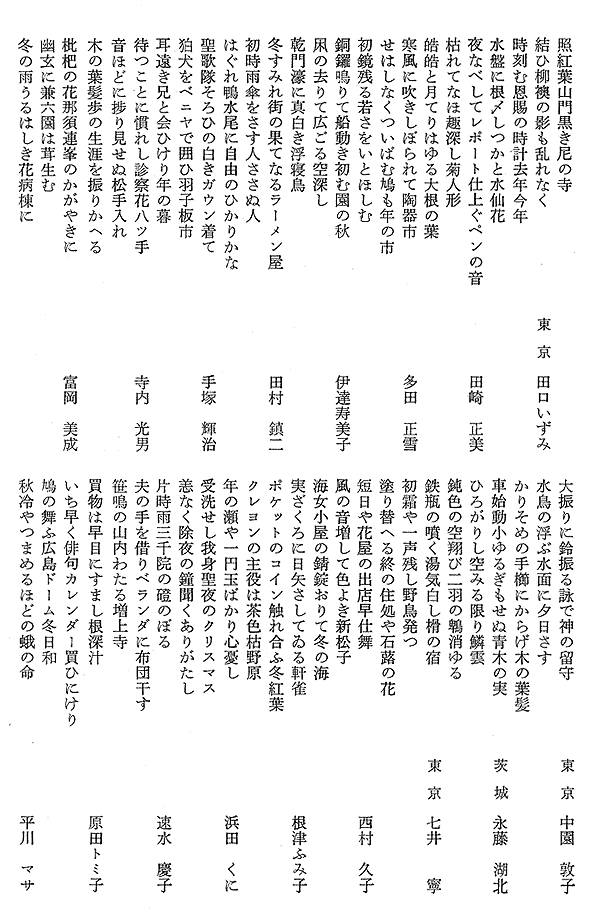 照紅葉山門黒き尼の寺
結ひ柳襖の影も乱れなく
東京 田口いずみ
時刻む恩賜の時計去年今年
水盤に根〆しつかと水仙花
夜なべしてレポート仕上ぐペンの音
田崎 正美
枯れてなほ趣深し菊人形
皓皓と月てりはゆる大根の葉
寒風に吹きしぼられて陶器市
多田 正雪
せはしなくついばむ鳩も年の市
初鏡残る若さをいとほしむ
銅鑼鳴りて船動き初む園の秋
伊達寿美子
凩の去りて広ごる空深し
乾門濠に真白き浮寝鳥
冬すみれ街の果てなるラーメン屋
田村 鎮二
初時雨傘をさす人ささぬ人
はぐれ鴨水尾に自由のひかりかな
聖歌隊そろひの白きガウン着て
手塚 輝治
狛犬をベニヤで囲ひ羽子板市
耳遠き兄と会ひけり年の暮
待つことに慣れし診察花八ツ手
寺内 光男
音ほどに捗り見せぬ松手入れ
木の葉髪歩の生涯を振りかへる
枇杷の花那須連峯のかがやきに
富岡 美成
幽玄に兼六園は茸生む
冬の雨うるはしき花病棟に
大振りに鈴振る詠で神の留守
東京 中園 敦子
水鳥の浮ぶ水面に夕日さす
かりそめの手櫛にからげ木の葉髪
車始動小ゆるぎもせぬ青木の実
茨城 永藤 湖北
ひろがりし空みる限り鱗雲
鈍色の空翔び二羽の鶚消ゆる
鉄瓶の噴く湯気白し榾の宿
東京 七井 寧
初霜や一声残し野鳥発つ
塗り替へる終の住処や石蕗の花
短日や花屋の出店早仕舞
西村 久子
風の音増して色よき新松子
海女小屋の錆錠おりて冬の海
実ざくろに日矢さしてゐる軒雀
根津ふみ子
ポケットのコイン触れ合ふ冬紅葉
クレヨンの主役は茶色枯野原
年の瀬や一円玉ばかり心憂し
浜田 くに
受洗せし我身聖夜のクリスマス
恙なく除夜の鐘聞くありがたし
片時雨三千院の磴のぼる
速水 慶子
夫の手を借りベランダに布団干す
笹鳴の山内わたる増上寺
買物は早目にすまし根深汁
原田トミ子
いち早く俳句カレンダー買ひにけり
鳩の舞ふ広島ドーム冬日和
秋冷やつまめるほどの蛾の命
平川 マサ